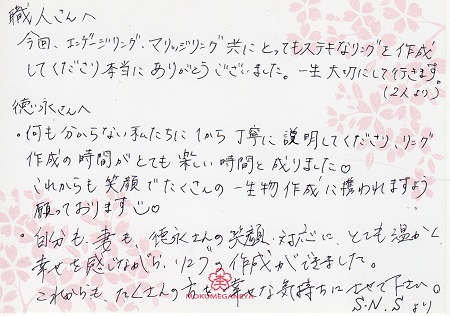 職人さんへ
今回、エンゲージリング、マリッジリング共にとってもステキなリングを作成
してくださり本当にありがとうございました。一生大切にして行きます。
(2人より)
徳永さんへ
・何も分からない私たちに1から丁寧に説明してくださり、リング
作成の時間がとても楽しい時間と成りました♡
これからも笑顔でたくさんの一生物作成に携われますよう
願っております
・自分も、妻も、徳永さんの笑顔・対応に、とても温かく
幸せを感じながら、リングの作成ができました。
これからも、たくさんの方を幸せな気持ちにさせて下さい。
MOKUMEGANEYA
S.N.Sより